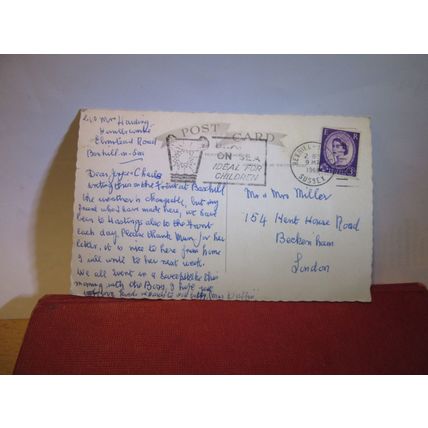 c/o Mrs Harding
Elmstead Road
Bexhill-on-Sea
POST CARD
BEX
ON SEA
IDEAL FOR
CHILDREN
BEXHILL-
SUSSEX
Dear Joyce + Charles
writing this on the front at Bexhill
the weather is changeable, but my
friend who I have made here, we have
been to Hastings also to the front
each day. Please thank Mum for her
letter, it is nice to hear from home
I will write to her next week.
We all went in a
morning with the Boss, I hope
Mr & Mrs Miller
154 Kent House Road
Beckenham
London